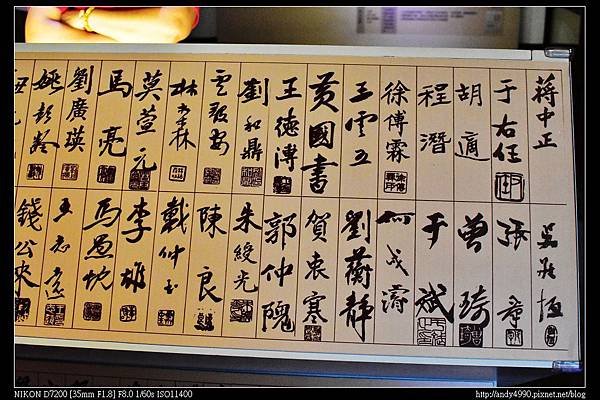 蔣中正
于右任
胡適
程潛
徐傅霖
王雲五
黃國書
王德溥
劉和鼎
莫萱元
馬亮
劉廣瑛
姚彭齡
張羣
曾琦
于斌
何成濬
劉蘅靜
賀衷寒
郭仲隗
朱綬光
陳良
戴仲玉
李雄
馬愚忱
錢公來
NIKON D7200 [35mm F1.8] F8.0 1/60s ISO11400
http://andy4990.pixnet.net/blog